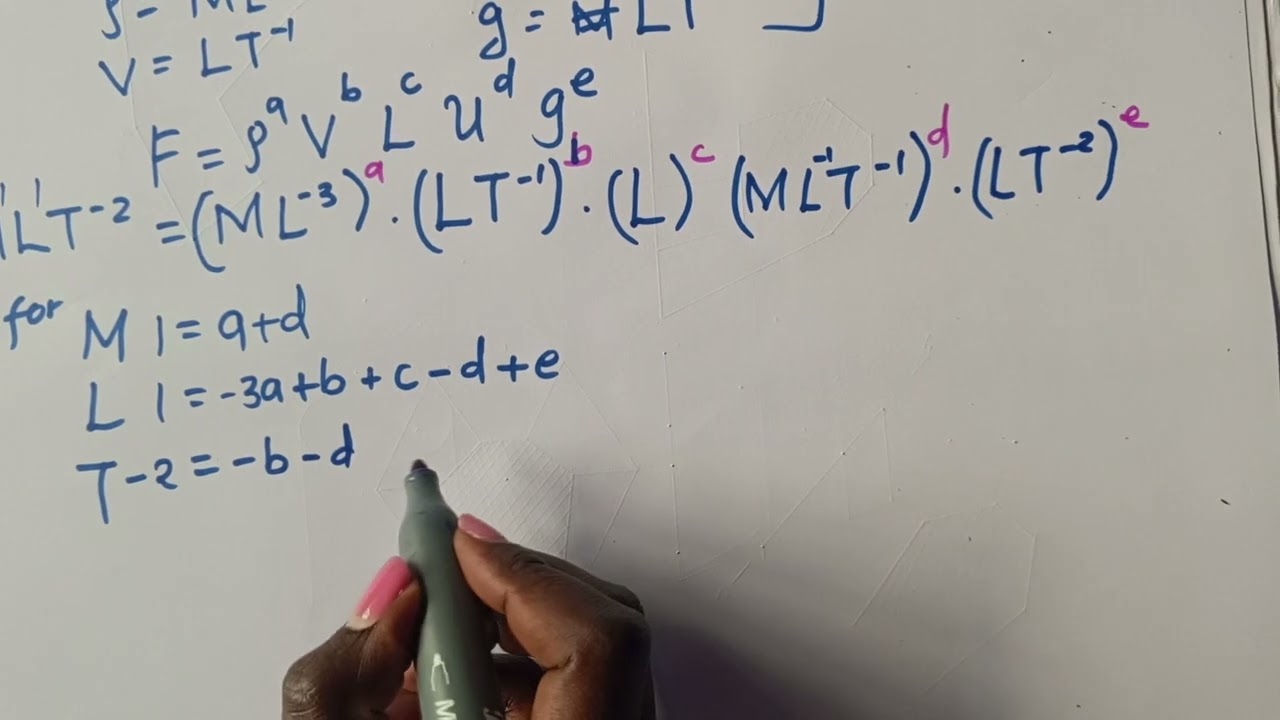 ρ = ML
V = LT⁻¹
g = LT
F = ρᵃ Vᵇ Lᶜ uᵈ gᵉ
L¹T⁻² = (ML⁻³)ᵃ · (LT⁻¹)ᵇ · (L)ᶜ (ML⁻¹T⁻¹)ᵈ · (LT⁻²)ᵉ
for M 1 = a+d
L 1 = -3a+b+c-d+e
T -2 = -b-d